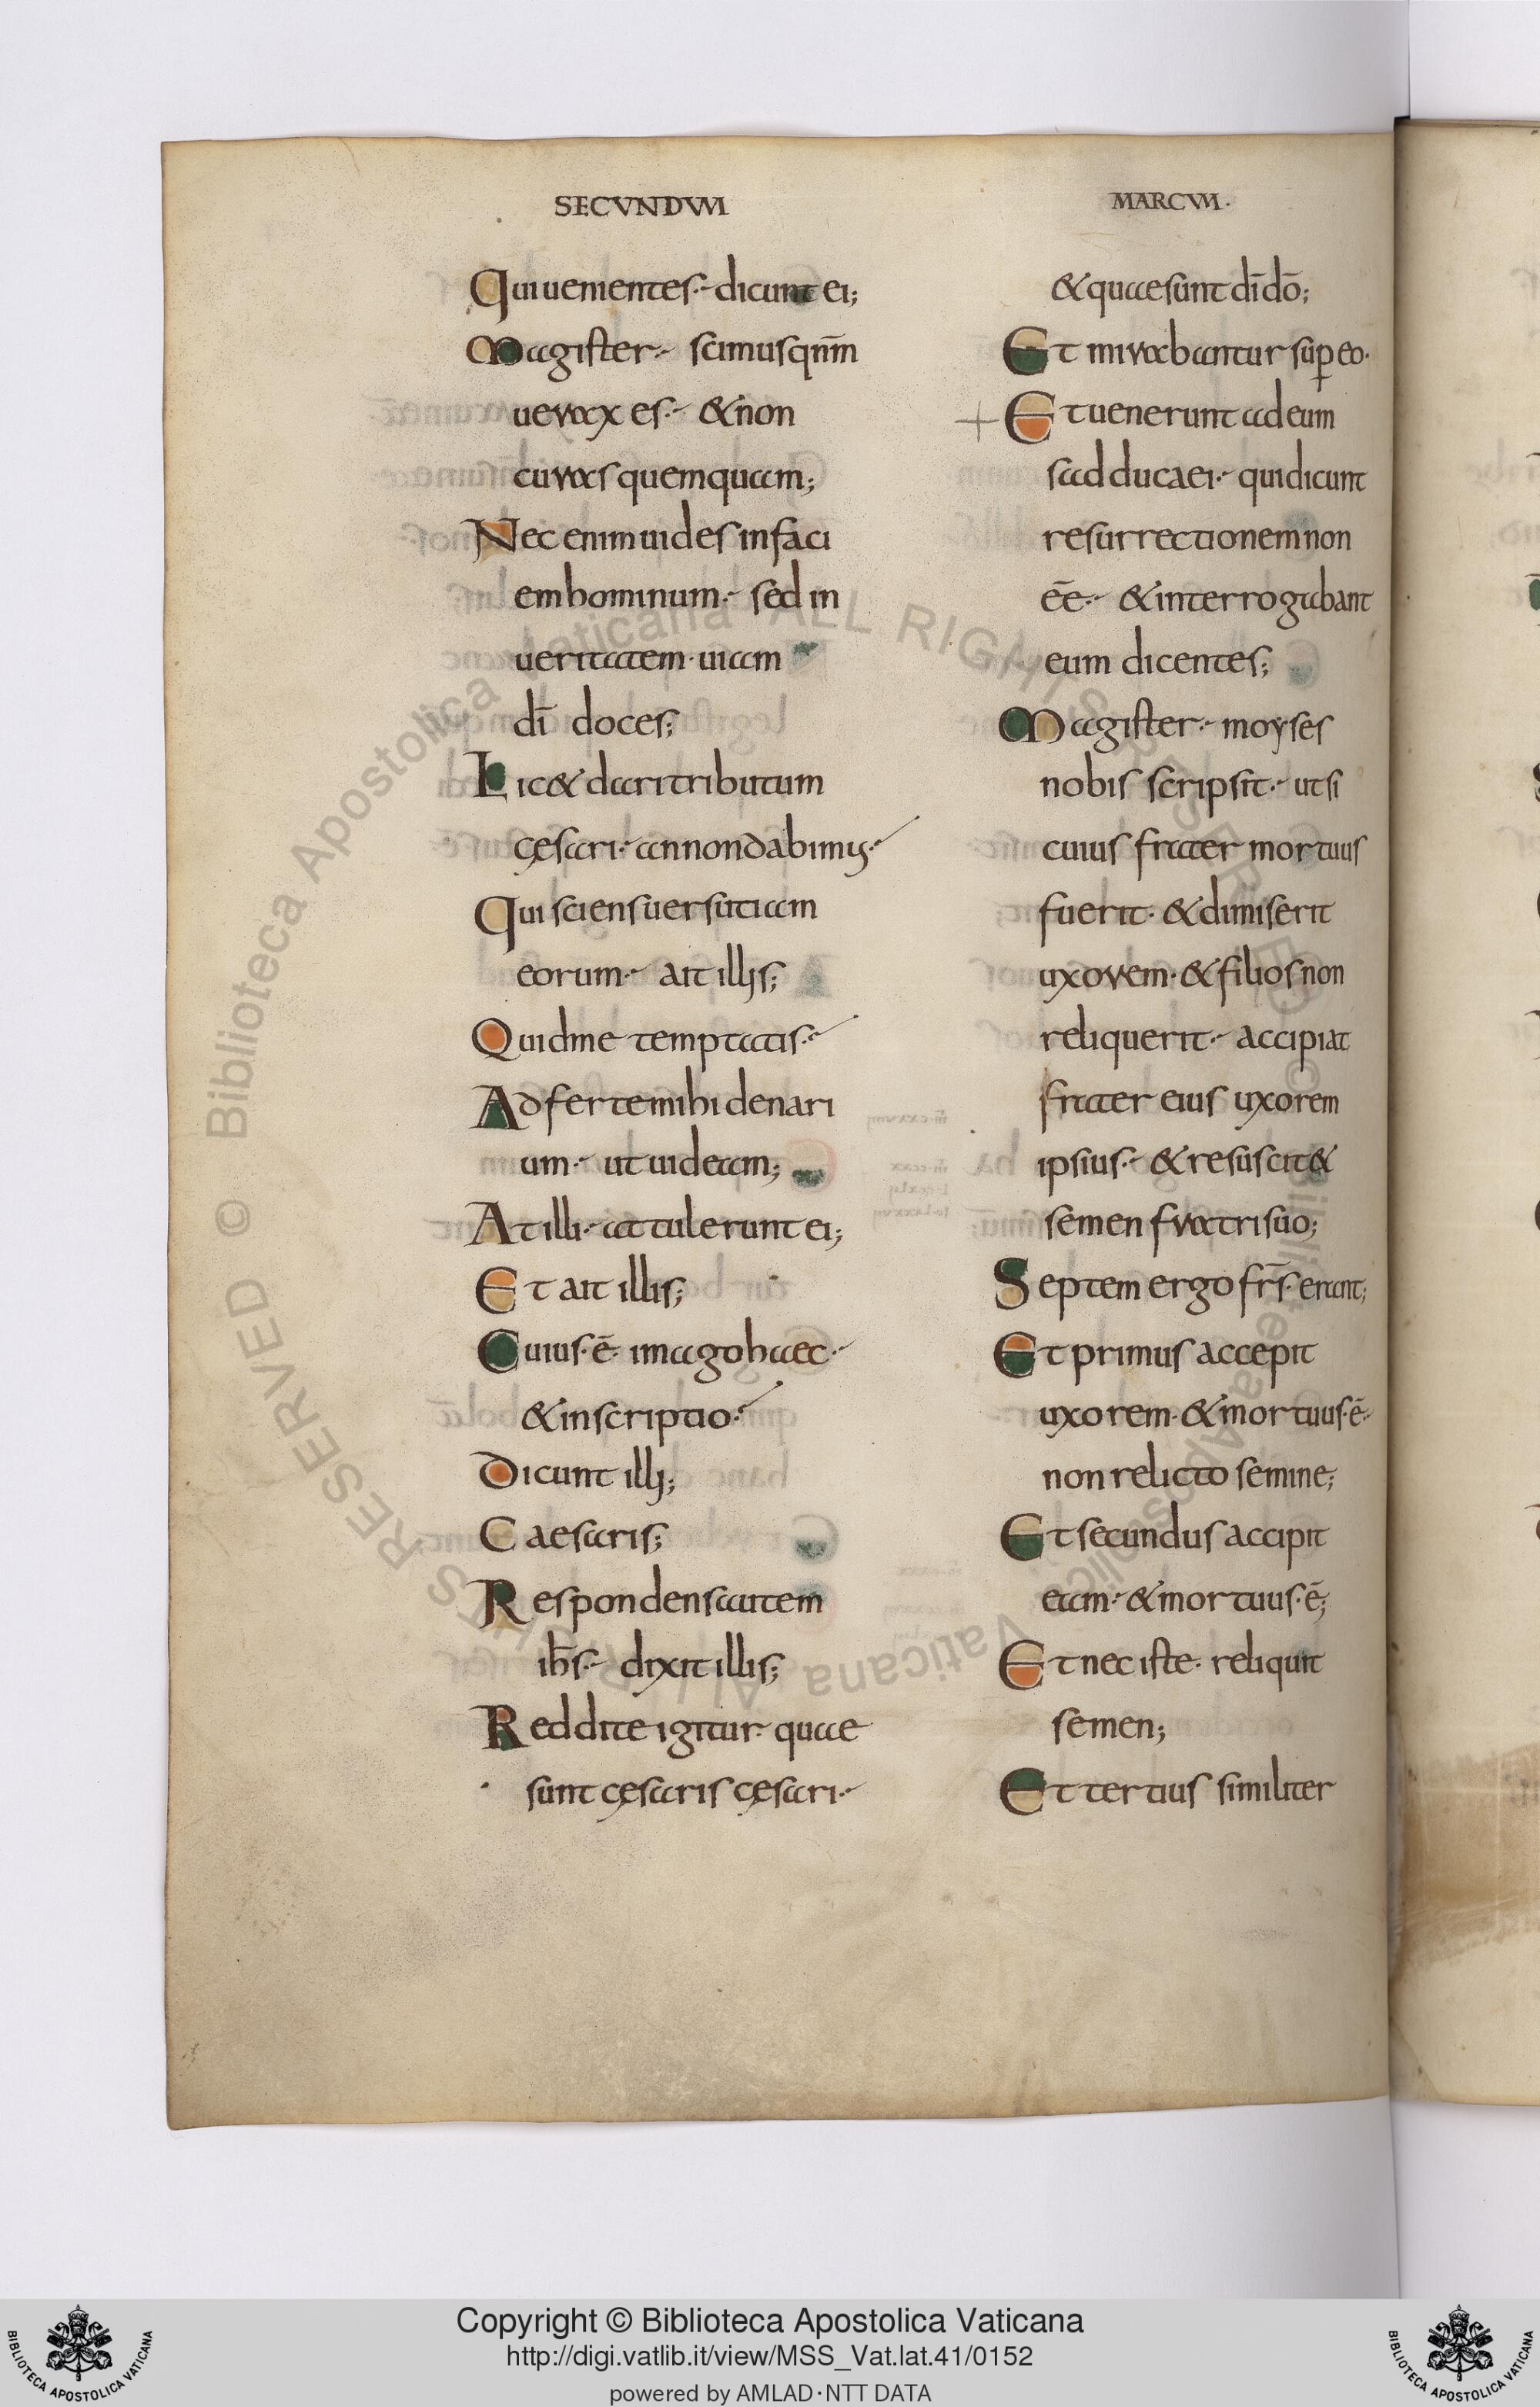 SECVNDVM
MARCVM·
Qui uenientes·- dicunt ei;
Magister·- scimus qnm̄
uerax es·- & non
curas quemquam;
Nec enim uides in faci
em hominum·- sed in
ueritatem· uiam
dī doces;
Lic& dari tributum
cęsari·- an non dabimus·-
Qui sciens uersutiam
eorum·- ait illis;
Quid me temptatis·-
Adferte mihi denari
um·- ut uideam;
At illi·- attulerunt ei;
Et ait illis;
Cuius· ē· imago haec·-
& inscriptio·-
Dicunt illi;
Caesaris;
Respondens autem
ih̄s·- dixit illis;
Reddite igitur· quae
sunt cęsaris cęsari·-
& quae sunt dī dō;
Et mirabantur sup̱ eo·
+ Et uenerunt ad eum
sadducaei·- qui dicunt
resurrectionem non
ēē·- & interrogabant
eum dicentes;
Magister·- moyses
nobis scripsit·- ut si
cuius frater mortuus
fuerit· & dimiserit
uxorem· & filios non
reliquerit·- accipiat
frater eius uxorem
ipsius·- & resuscit&
semen fratri suo;
Septem ergo fr̄s· erant;
Et primus accepit
uxorem· & mortuus· ē·-
non relicto semine;
Et secundus accipit
eam·- & mortuus· ē;
Et nec iste· reliquit
semen;
Et tertius similiter
Copyright © Biblioteca Apostolica Vaticana
http://digi.vatlib.it/view/MSS_Vat.lat.41/0152
powered by AMLAD·NTT DATA
BIBLIOTECA APOSTOLICA VATICANA
BIBLIOTECA APOSTOLICA VATICANA
© Biblioteca Apostolica Vaticana ALL RIGHTS RESERVED © Biblioteca Apostolica Vaticana ALL RIGHTS RESERVED